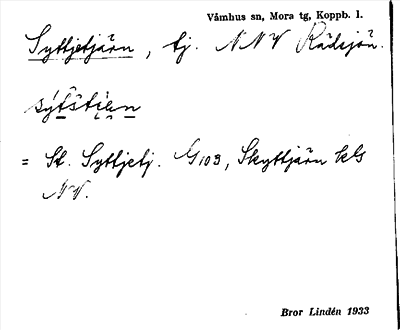 Våmhus sn, Mora tg, Koppb. l.
Syttjetjärn, tj. NNV Rädsjön.
= St. Syttjetj. G103, Skyttjärn kls
NV.
Bror Lindén 1933